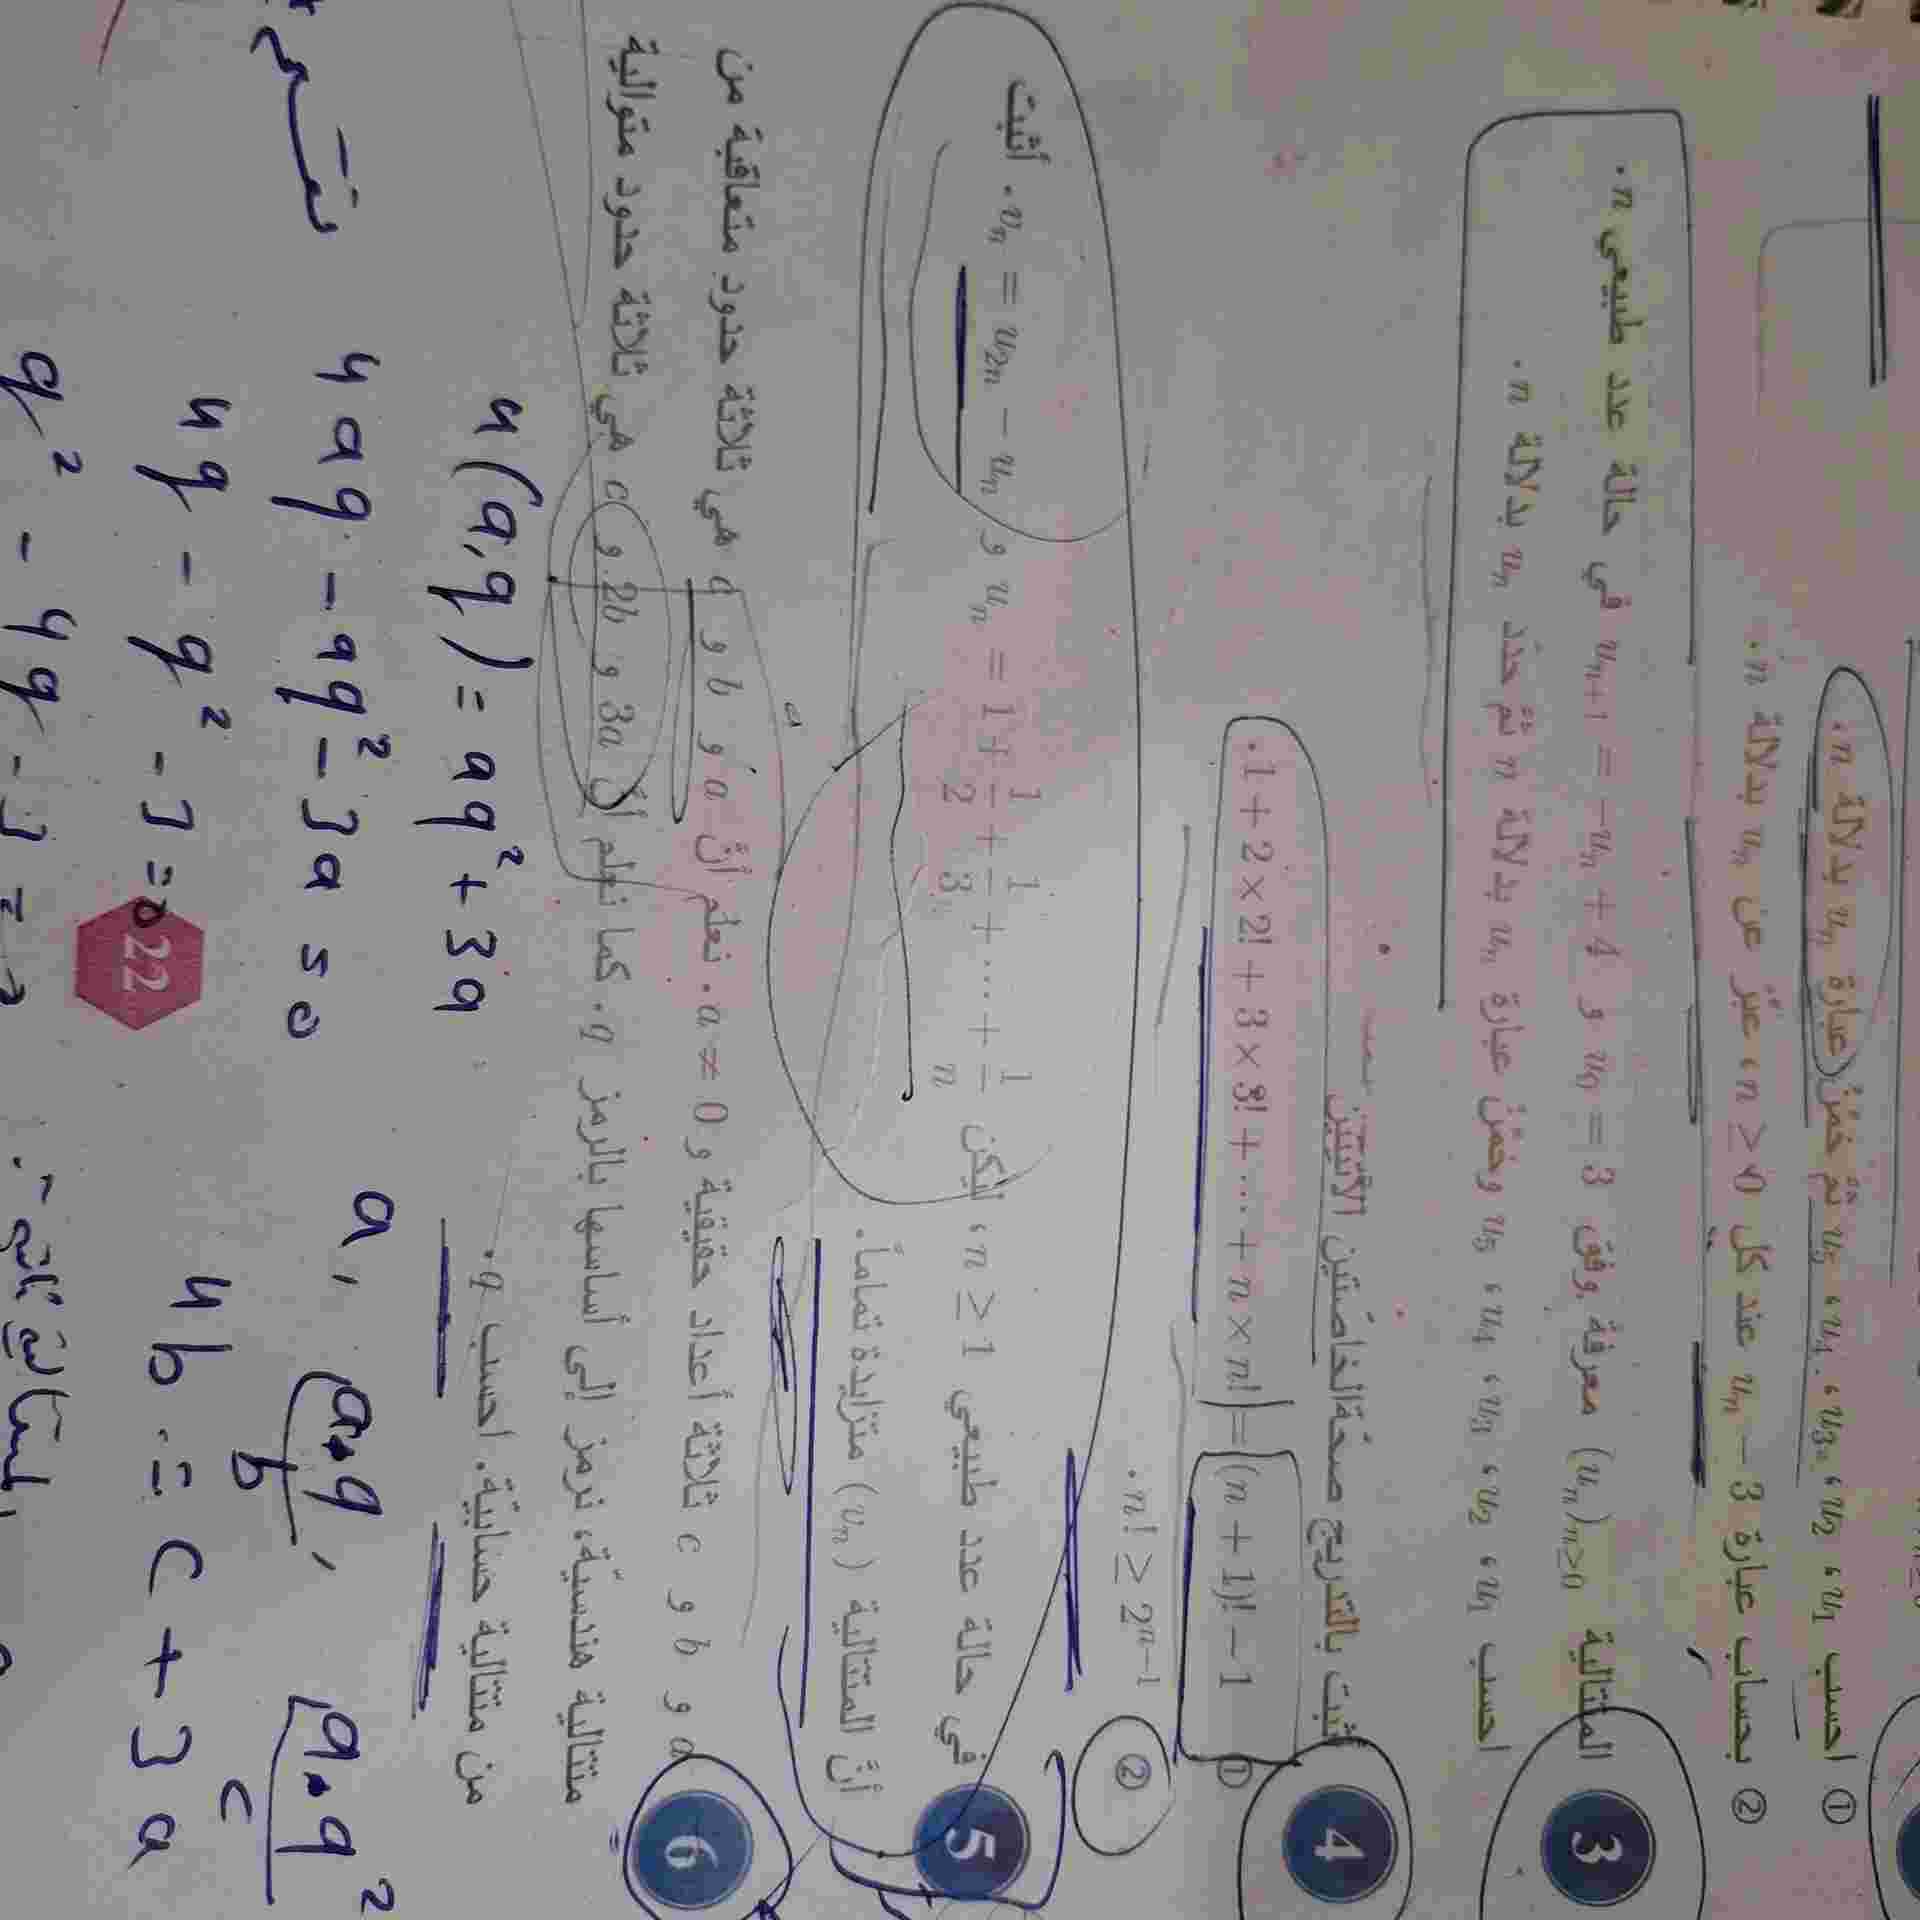 ① احسب u₁، u₂، u₃، u₄، u₅ ثمّ خمّن عبارة uₙ بدلالة n.
② بحساب عبارة uₙ − 3 عند كل n ≥ 0، عبّر عن uₙ بدلالة n.
3 المتتالية (uₙ)ₙ≥₀ معرفة وفق u₀ = 3 و uₙ₊₁ = −uₙ + 4 في حالة عدد طبيعي n.
احسب u₁، u₂، u₃، u₄، u₅ وخمّن عبارة uₙ بدلالة n ثمّ حدّد uₙ بدلالة n.
4 أثبت بالتدريج صحّة الخاصّتين الآتيتين
① 1 + 2 × 2! + 3 × 3! + ⋯ + n × n! = (n + 1)! − 1.
② n! ≥ 2ⁿ⁻¹.
5 في حالة عدد طبيعي n ≥ 1، ليكن uₙ = 1 + 1/2 + 1/3 + ⋯ + 1/n و vₙ = u₂ₙ − uₙ. أثبت
أنّ المتتالية (vₙ) متزايدة تماماً.
6 a و b و c ثلاثة أعداد حقيقية و a ≠ 0. نعلم أنّ a و b و c هي ثلاثة حدود متعاقبة من
متتالية هندسيّة، نرمز إلى أساسها بالرمز q. كما نعلم أنّ 3a و 2b و c هي ثلاثة حدود متوالية
من متتالية حسابيّة. احسب q.
4(a.q) = aq² + 3a
a, a.q, a.q²
b
c
4aq − aq² − 3a = 0
4b = c + 3a
4q − q² − 3 = 0
22